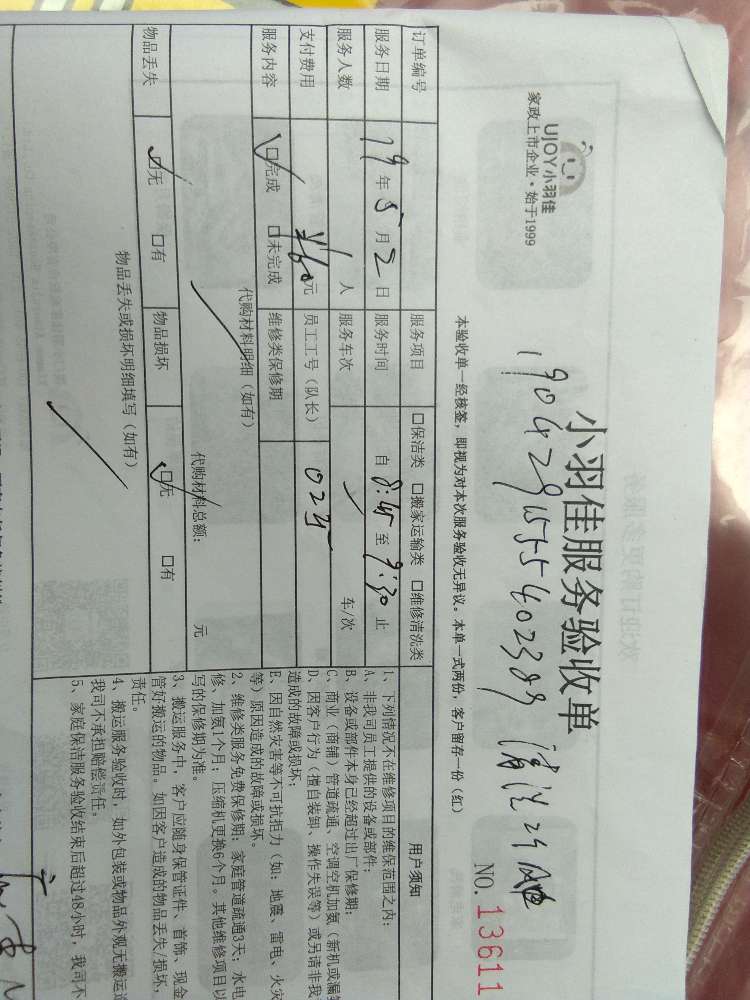 UJOY小羽佳
家政上市企业·始于1999
小羽佳服务验收单
NO. 13611
本验收单一经核签，即视为对本次服务验收无异议。本单一式两份，客户留存一份（红）
订单编号
服务项目 □保洁类 □搬家运输类 □维修清洗类
服务日期 19年5月2日 服务时间 自8:45至9:30止
服务人数 1人 服务车次 车/次
支付费用 ¥160元 员工工号（队长） 0235
服务内容 □完成 □未完成 维修类保修期
代购材料明细（如有）
代购材料总额： 元
物品丢失 □无 □有 物品损坏 □无 □有
物品丢失或损坏明细填写（如有）
用户须知
1、下列情况不在维修项目的维保范围之内：
A、非我司员工提供的设备或部件；
B、设备或部件本身已经超过出厂保修期；
C、商业（商铺）管道疏通、空调空机加氨（新机或漏氨
D、因客户行为（擅自装卸、操作失误等）或另请非我
造成的故障或损坏；
E、因自然灾害等不可抗拒力（如：地震、雷电、火灾
等）原因造成的故障或损坏。
2、维修类服务免费保修期：家庭管道疏通3天；水电
修、加氨1个月；压缩机更换6个月。其他维修项目以
写的保修期为准。
3、搬运服务中，客户应随身保管证件、首饰、现金
管好搬运的物品。如因客户造成的物品丢失/损坏，
责任。
4、搬运服务验收时，如外包装或物品外观无搬运造
我司不承担赔偿责任。
5、家庭保洁服务验收结束后超过48小时，我司不